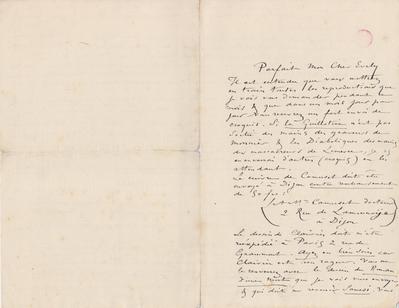 Parfait Mon Cher Evely
Il est entendu que vous mettez
en train toutes les reproductions que
je vais vous demander pendant le
mois & que dans un mois jour pour
jour vous recevrez un fort envoi de
croquis. Si la Guillotine n'est pas
sortie des mains des graveurs de
monnier & les Diaboliques des mains
des massacreurs de Lemerre, je
enverrai d'autres (croquis) en les
attendant.
Le cuivre de Camuset doit être
envoyé à Dijon contre remboursement
de 50 frs :
(à Mr Camuset docteur
2 Rue de Lamonnoye
à Dijon
Le dessin de Clairin doit m'être
réexpédié à Paris 2 rue de
Grammont. Ayez en bien soin car
Clairin est un rageur. Vous me
le renverrez avec le dessin du Roman
d'une nuit que je vais vous envoyer
& qui doit me revenir aussi. Vous